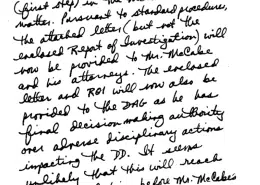 (first step) in the
matter. Pursuant to standard procedure,
the attached letter (but not the
enclosed Report of Investigation) will
now be provided to Mr. McCabe
and his attorneys. The enclosed
letter and ROI will now also be
provided to the DAG as he has
final decision making authority
over adverse disciplinary actions
impacting the DD. It seems
unlikely that this will reach
before Mr. McCabe's